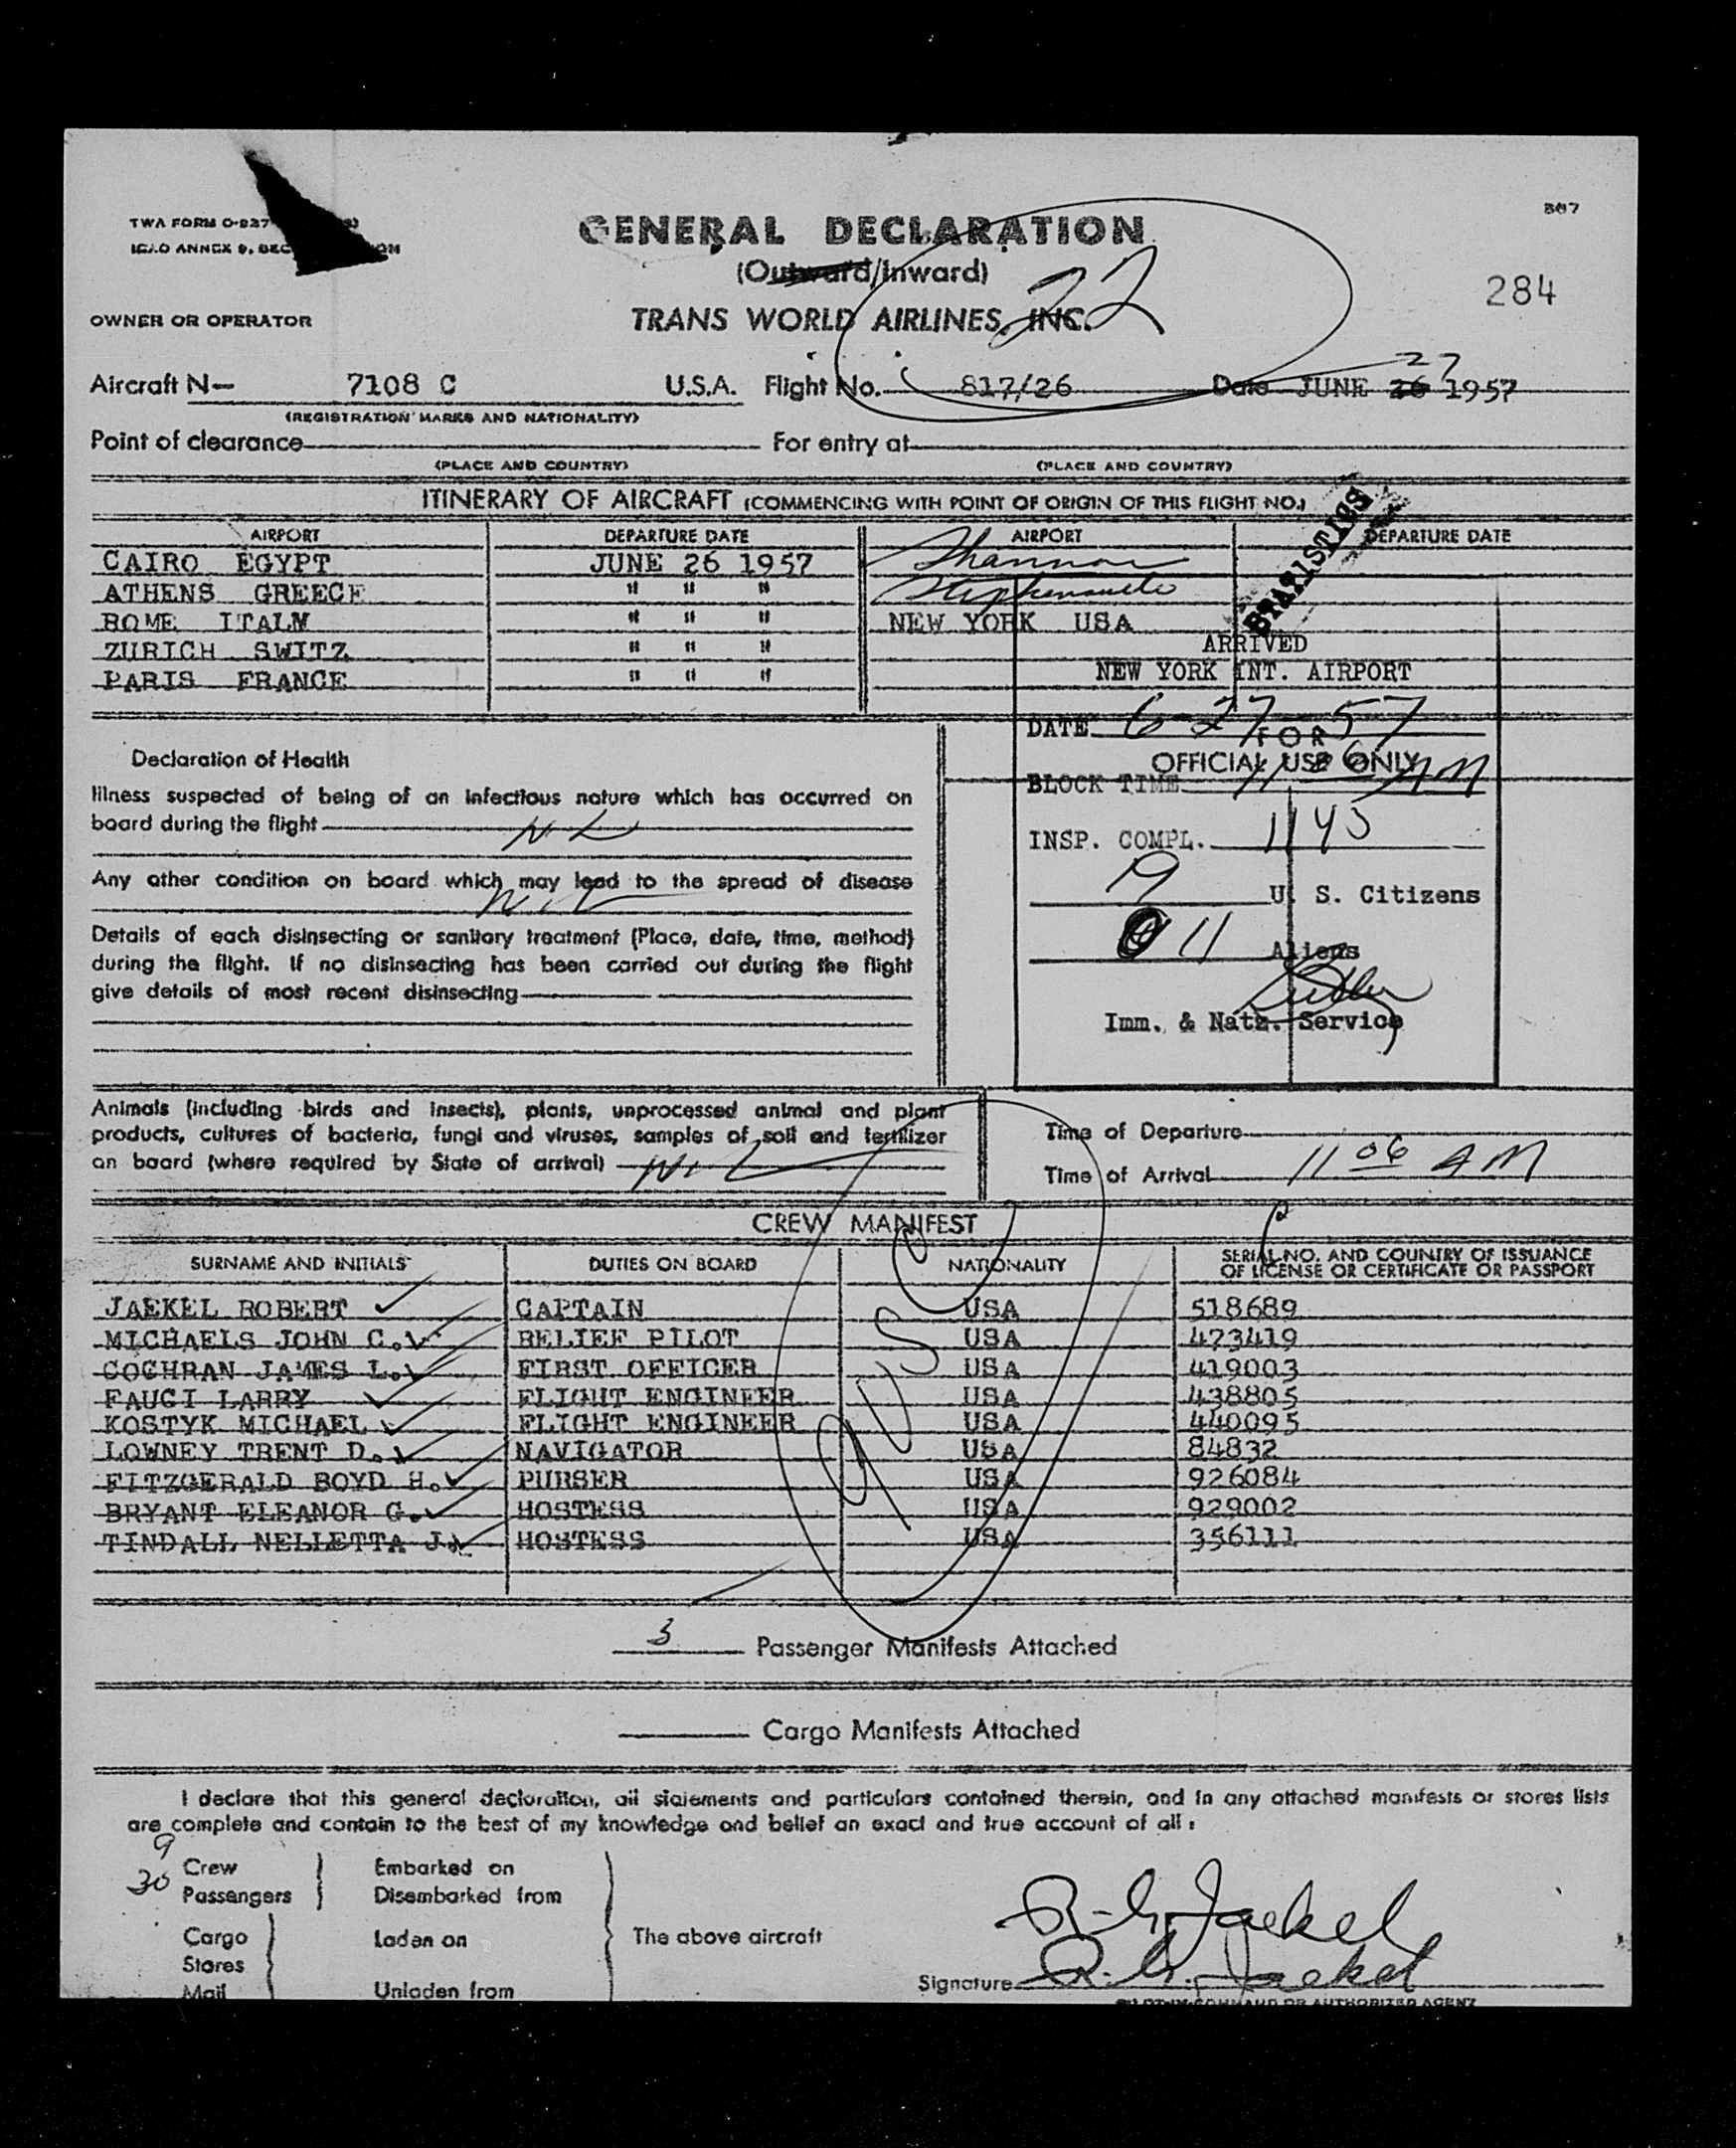 TWA FORM O-837
ICAO ANNEX 9, DEC
807
GENERAL DECLARATION
(Outward/Inward)
22
284
OWNER OR OPERATOR
TRANS WORLD AIRLINES, INC.
Aircraft N— 7108 C U.S.A. Flight No. 817/26 Date JUNE 26 27 1957
(REGISTRATION MARKS AND NATIONALITY)
Point of clearance For entry at
(PLACE AND COUNTRY) (PLACE AND COUNTRY)
ITINERARY OF AIRCRAFT (COMMENCING WITH POINT OF ORIGIN OF THIS FLIGHT NO.)
STATISTICS
AIRPORT DEPARTURE DATE AIRPORT DEPARTURE DATE
CAIRO EGYPT JUNE 26 1957 Shannon
ATHENS GREECE " " " Stephenville
ROME ITALM " " " NEW YORK USA
ZURICH SWITZ " " "
PARIS FRANCE " " "
ARRIVED
NEW YORK INT. AIRPORT
DATE 6-27-57
FOR
OFFICIAL USE ONLY
BLOCK TIME 11 06 AM
INSP. COMPL. 1145
19 U. S. Citizens
11 Aliens
Imm. & Natz. Service
Declaration of Health
Illness suspected of being of an infectious nature which has occurred on
board during the flight Nil
Any other condition on board which may lead to the spread of disease
Nil
Details of each disinsecting or sanitory treatment (Place, date, time, method)
during the flight. If no disinsecting has been carried out during the flight
give details of most recent disinsecting
Animals (including birds and insects), plants, unprocessed animal and plant
products, cultures of bacteria, fungi and viruses, samples of soil and fertilizer
on board (where required by State of arrival) Nil
Time of Departure
Time of Arrival 11 06 AM
CREW MANIFEST
SURNAME AND INITIALS DUTIES ON BOARD NATIONALITY SERIAL NO. AND COUNTRY OF ISSUANCE
OF LICENSE OR CERTIFICATE OR PASSPORT
JAEKEL ROBERT CAPTAIN USA 518689
MICHAELS JOHN C. RELIEF PILOT USA 473419
COCHRAN JAMES L. FIRST OFFICER USA 419003
FAUCI LARRY FLIGHT ENGINEER USA 438805
KOSTYK MICHAEL FLIGHT ENGINEER USA 440095
LOWNEY TRENT D. NAVIGATOR USA 84832
FITZGERALD BOYD H. PURSER USA 926084
BRYANT ELEANOR G. HOSTESS USA 929002
TINDALL NELLETTA J. HOSTESS USA 356111
9 USC
3 Passenger Manifests Attached
Cargo Manifests Attached
I declare that this general declaration, all statements and particulars contained therein, and in any attached manifests or stores lists
are complete and contain to the best of my knowledge and belief an exact and true account of all :
9 Crew Embarked on
30 Passengers Disembarked from
Cargo Laden on The above aircraft
Stores
Mail Unladen from
R. G. Jaekel
Signature R. G. Jaekel
PILOT IN COMMAND OR AUTHORIZED AGENT